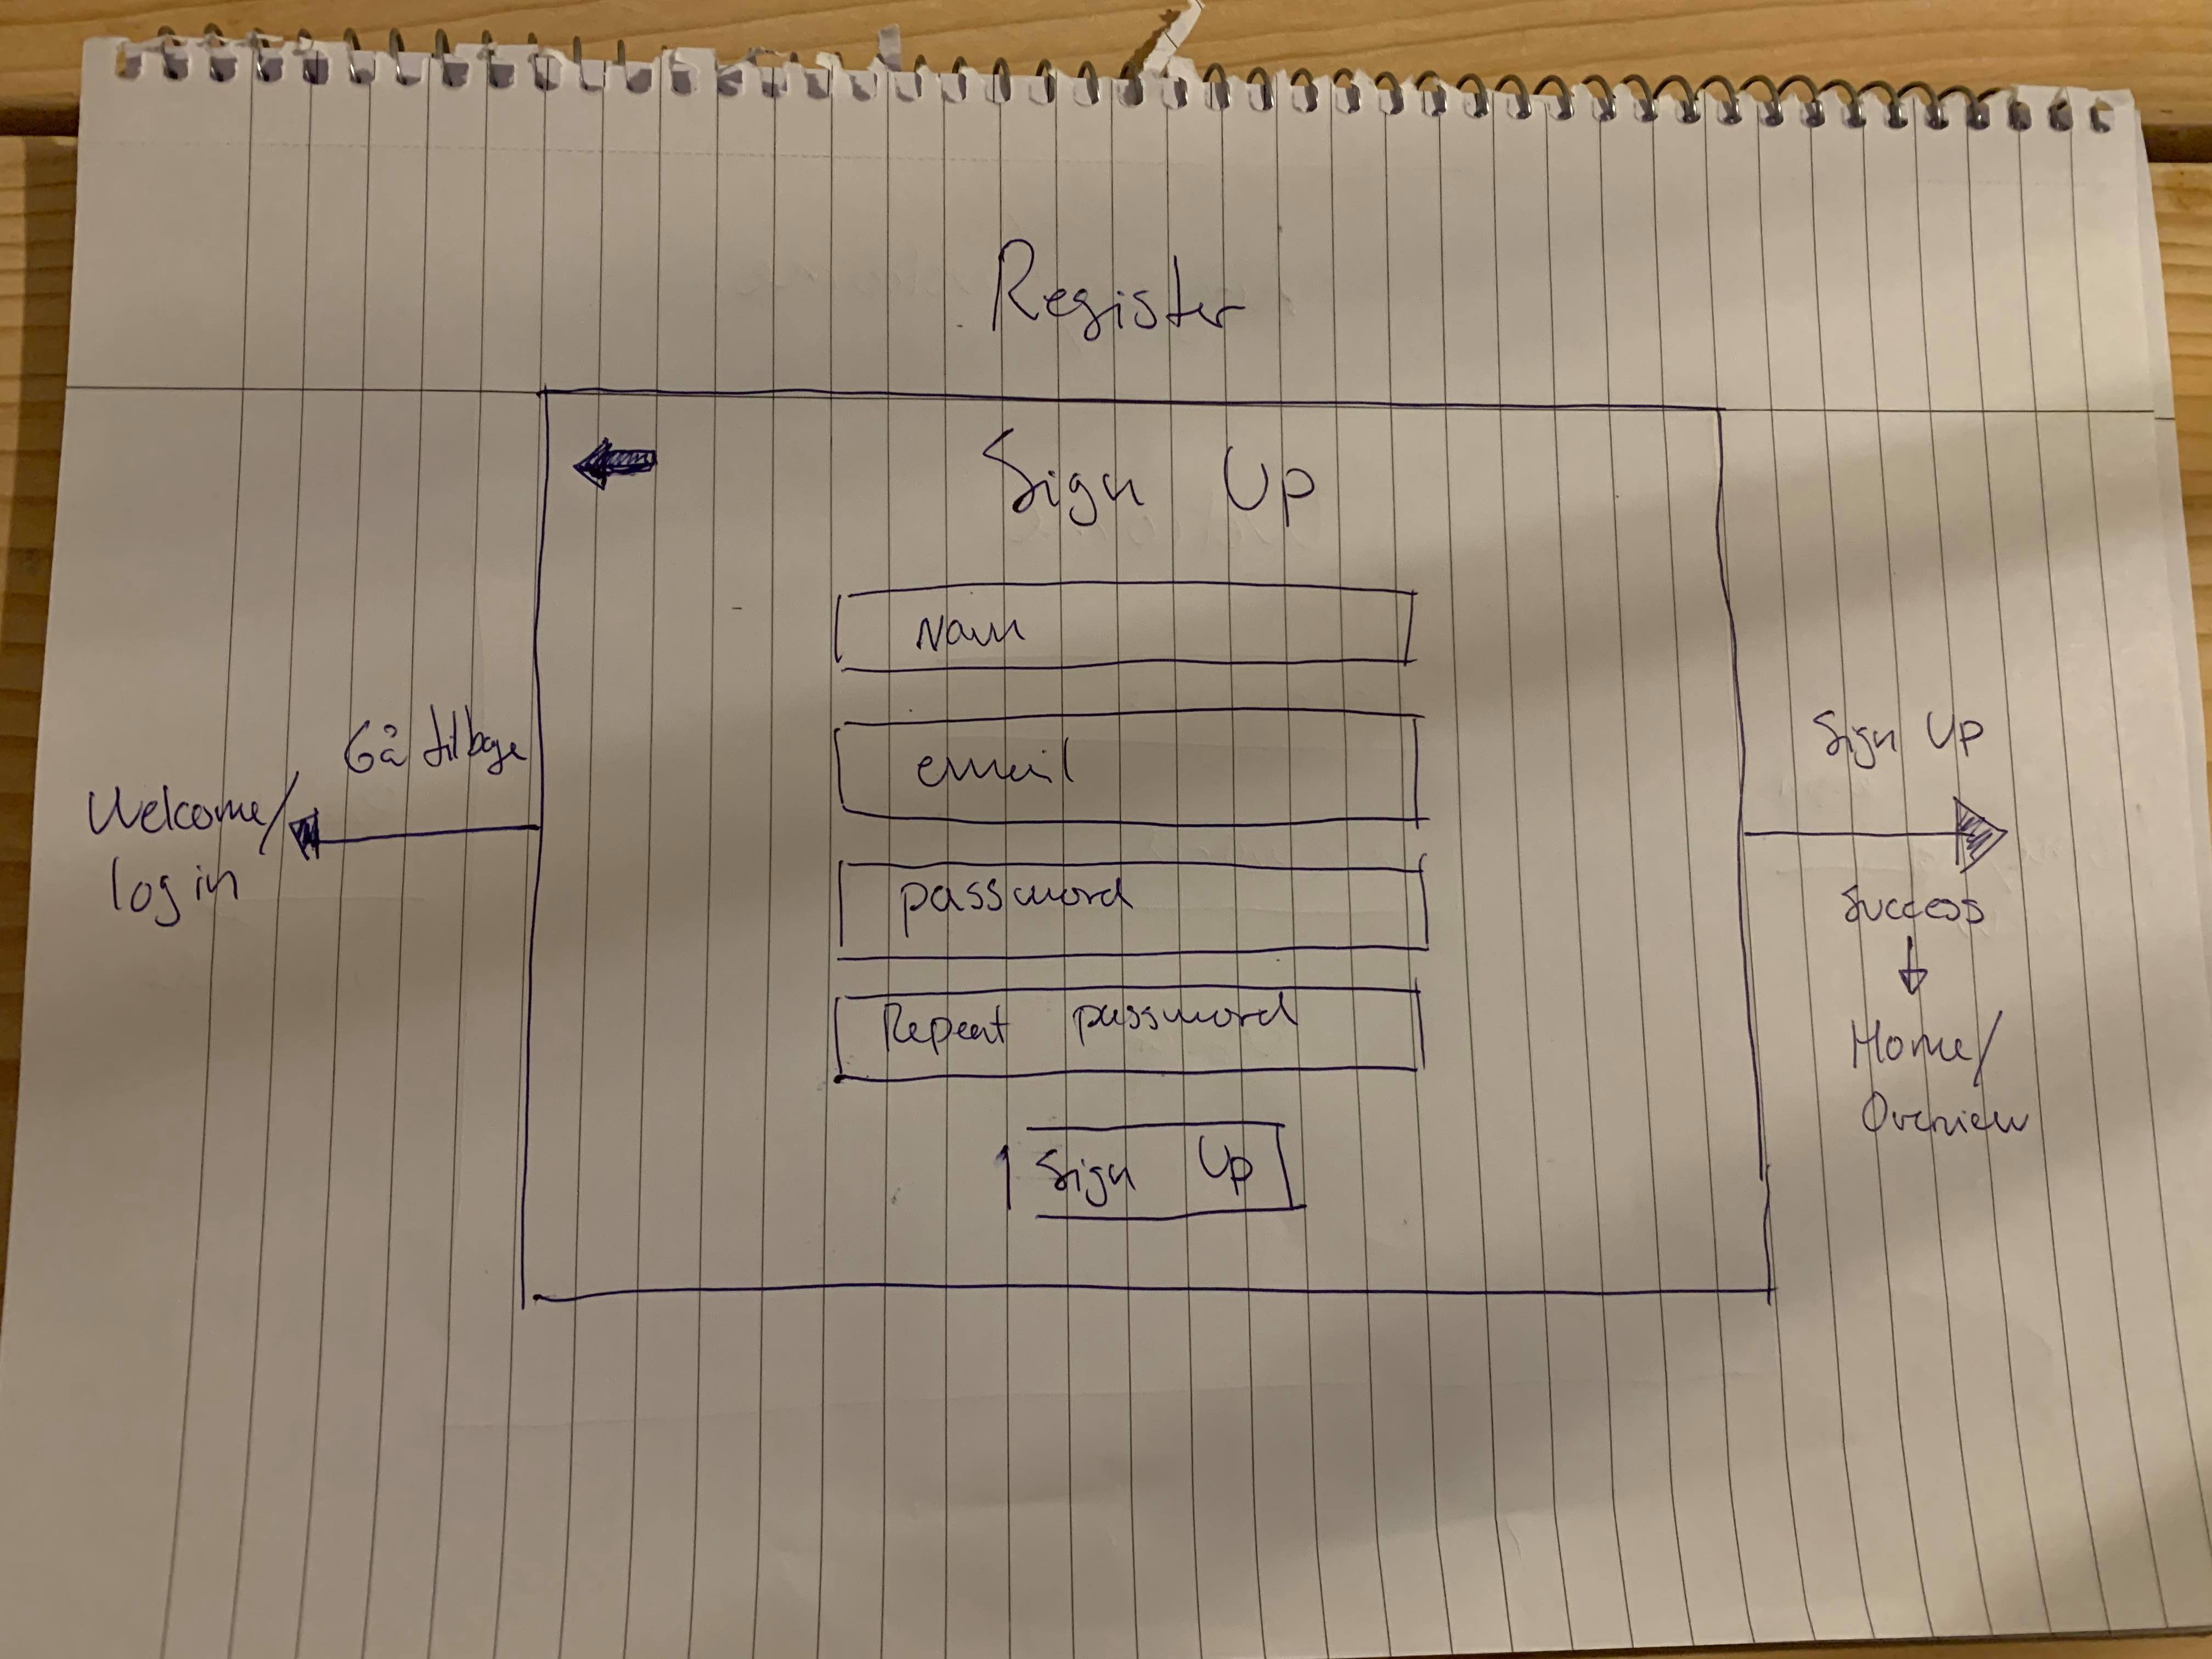 Register
Sign Up
Navn
email
password
Repeat password
Sign Up
Gå tilbage
Welcome/
log in
Sign Up
Success
Home/
Overview